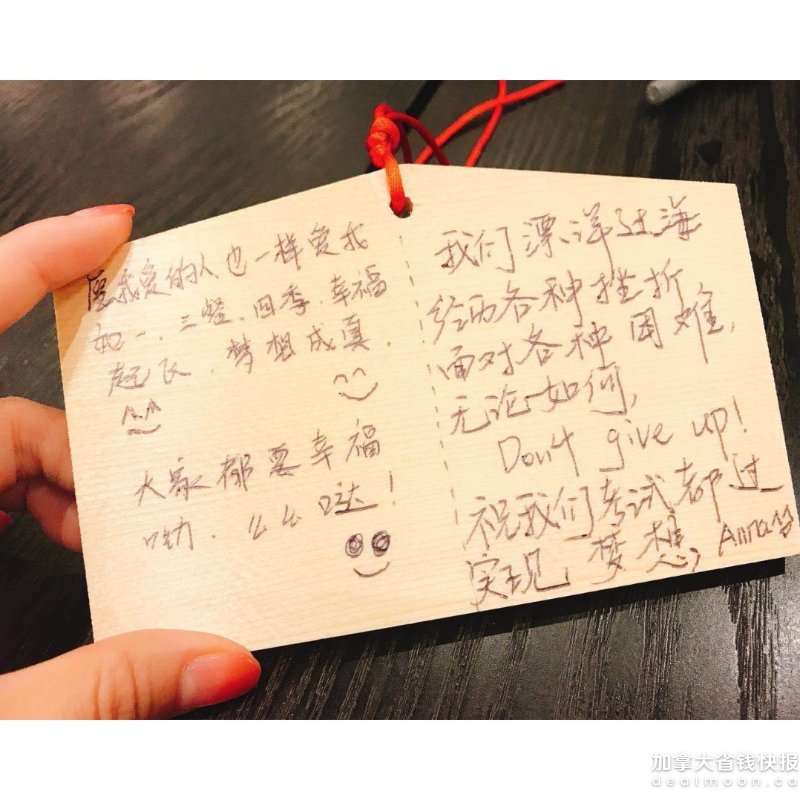 愿我爱的人也一样爱我
如一，三餐、四季，幸福
起飞，梦想成真，
大家都要幸福
呦，么么哒！
我们漂洋过海
经历各种挫折
面对各种困难，
无论如何，
Don't give up!
祝我们考试都过
实现梦想，Anna
加拿大省钱快报
dealmoon.ca